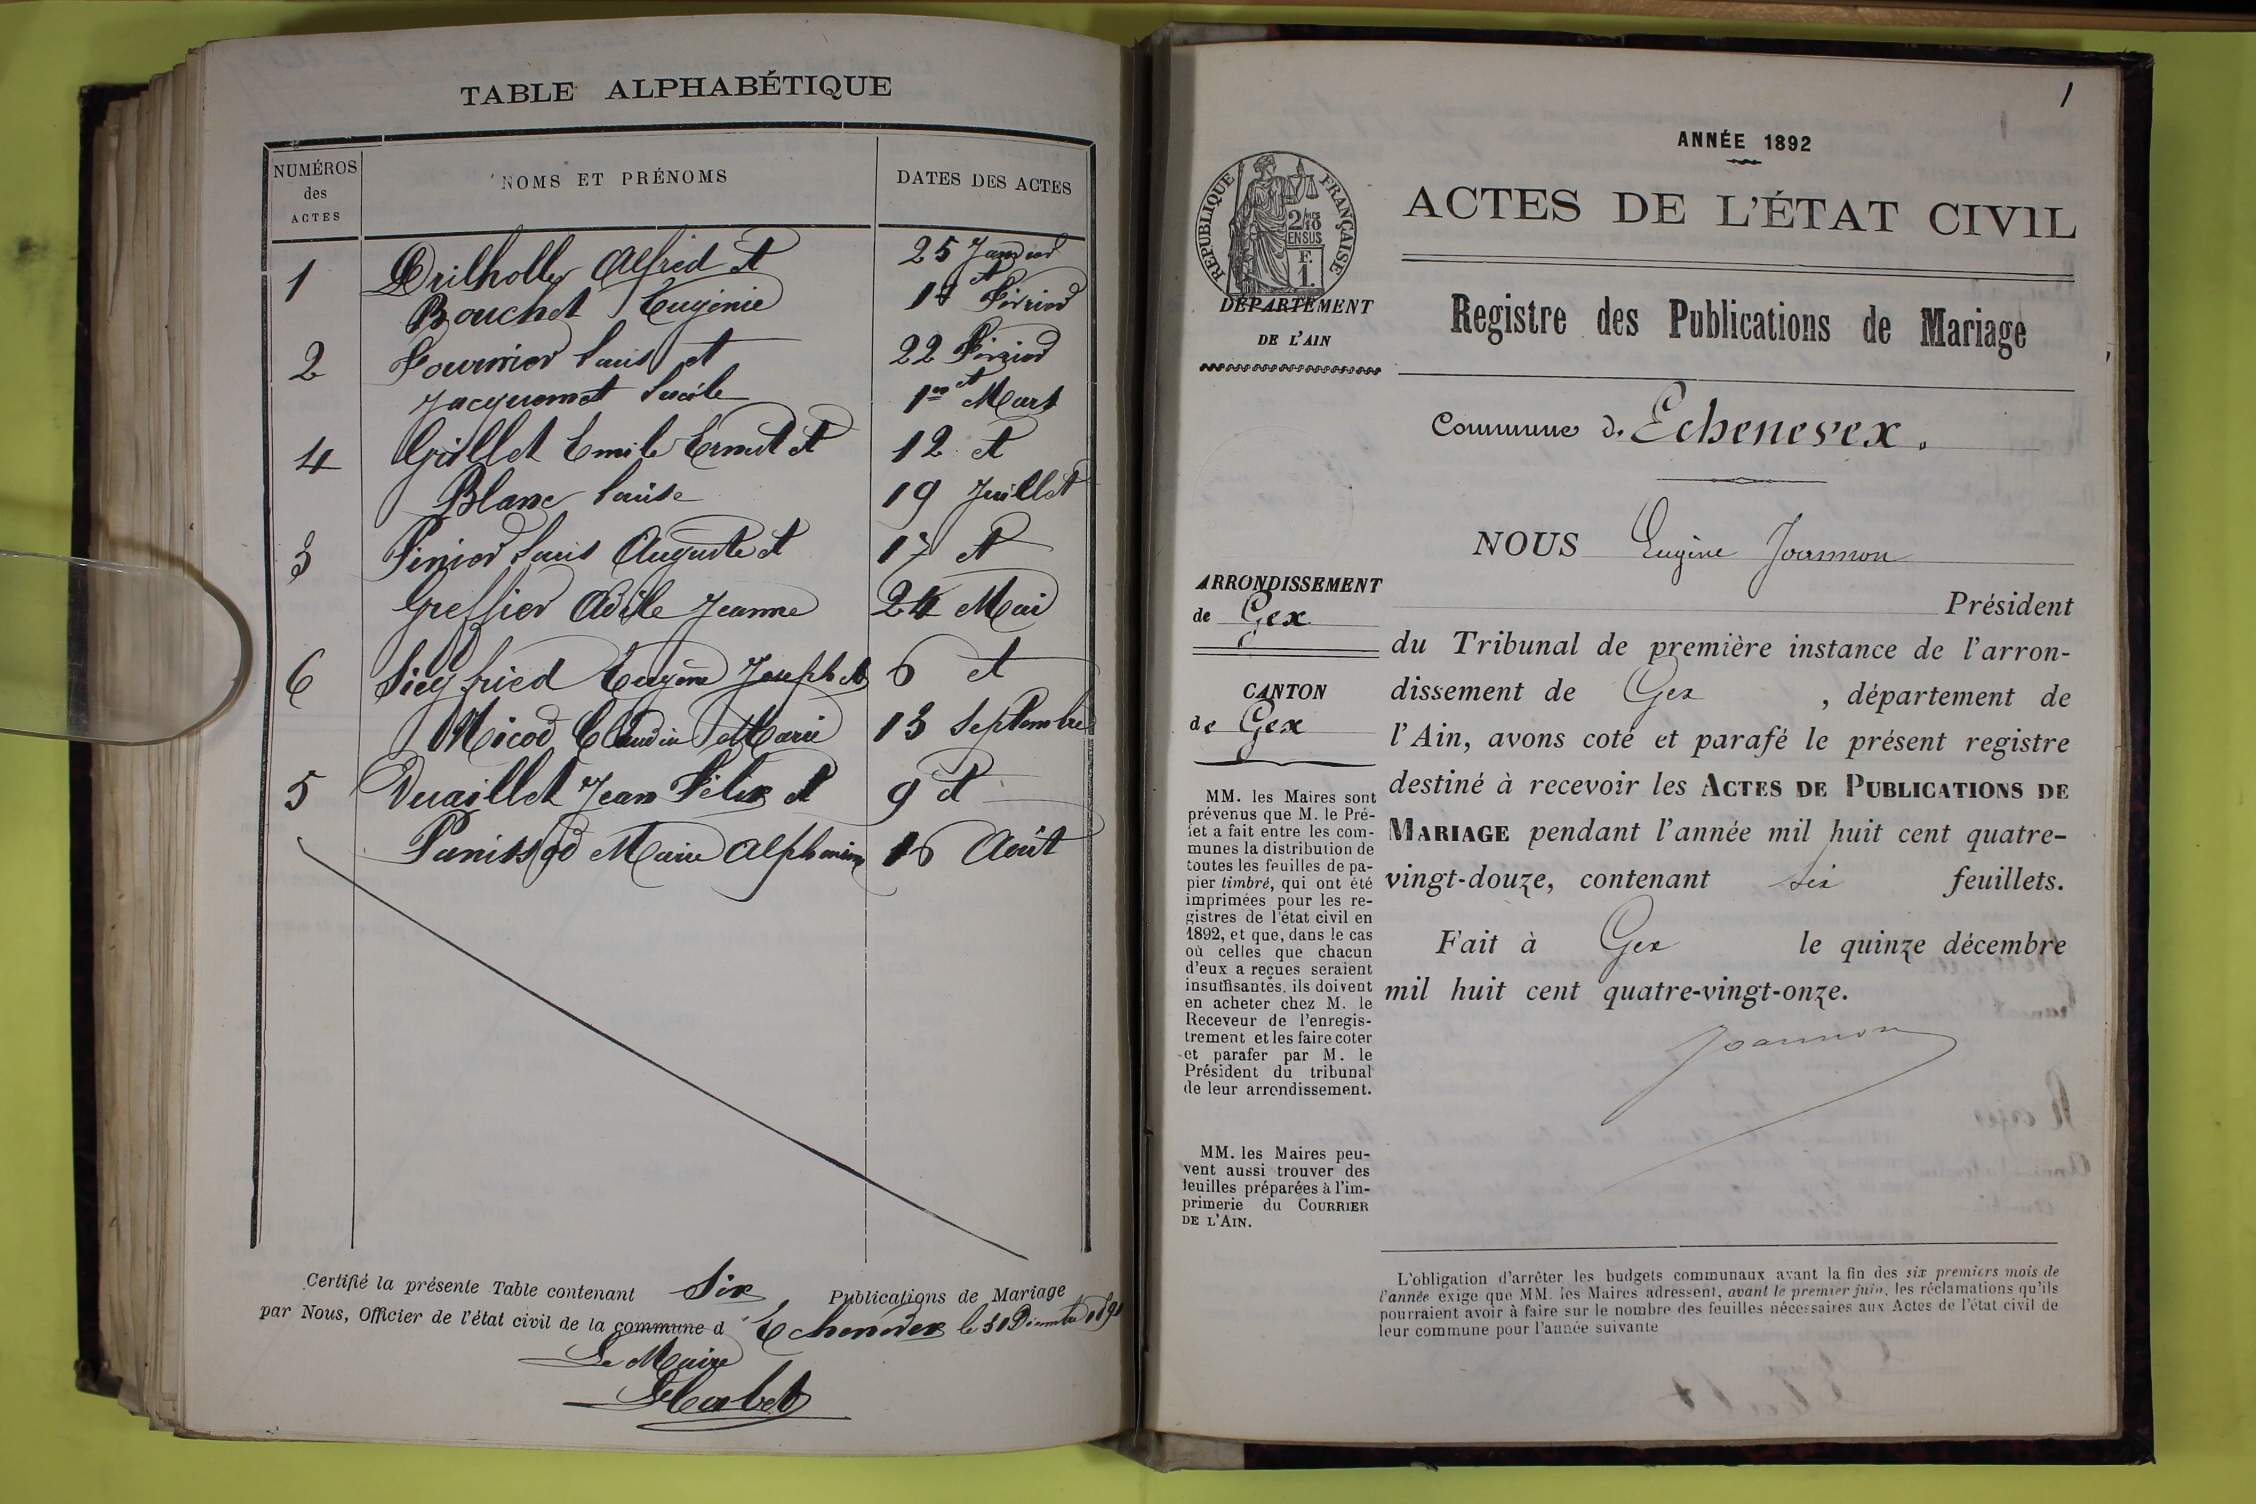 TABLE ALPHABÉTIQUE
NUMÉROS des ACTES
NOMS ET PRÉNOMS
DATES DES ACTES
1 Alfred et 25 Janvier et
Bouchet Eugénie 1 Février
2 Fournier Louis et 22 Février et
Jacquemet Lucile 1er Mars
4 Grillet Emile Ernest et 12 et
Blanc Louise 19 Juillet
3 Louis Auguste et 17 et
Greffier Adèle Jeanne 24 Mai
6 Siegfried Eugène Joseph et 6 et
Nicod Claudine Marie 13 Septembre
5 Jean Félix et 9 et
Panissod Marie Alphonsine 16 Août
Certifié la présente Table contenant Six Publications de Mariage
par Nous, Officier de l'état civil de la commune d'Echenevex le 31 Décembre 1891
Le Maire
1
ANNÉE 1892
ACTES DE L'ÉTAT CIVIL
RÉPUBLIQUE FRANÇAISE
2/10 EN SUS
F. 1.
DÉPARTEMENT
DE L'AIN
Registre des Publications de Mariage
Commune d. Echenevex.
ARRONDISSEMENT
de Gex
CANTON
de Gex
NOUS Eugène Joannon
Président
du Tribunal de première instance de l'arron-
dissement de Gex , département de
l'Ain, avons coté et parafé le présent registre
destiné à recevoir les ACTES DE PUBLICATIONS DE
MARIAGE pendant l'année mil huit cent quatre-
vingt-douze, contenant six feuillets.
Fait à Gex le quinze décembre
mil huit cent quatre-vingt-onze.
Joannon
MM. les Maires sont
prévenus que M. le Pré-
fet a fait entre les com-
munes la distribution de
toutes les feuilles de pa-
pier timbré, qui ont été
imprimées pour les re-
gistres de l'état civil en
1892, et que, dans le cas
où celles que chacun
d'eux a reçues seraient
insuffisantes, ils doivent
en acheter chez M. le
Receveur de l'enregis-
trement et les faire coter
et parafer par M. le
Président du tribunal
de leur arrondissement.
MM. les Maires peu-
vent aussi trouver des
feuilles préparées à l'im-
primerie du COURRIER
DE L'AIN.
L'obligation d'arrêter les budgets communaux avant la fin des six premiers mois de
l'année exige que MM. les Maires adressent, avant le premier juin, les réclamations qu'ils
pourraient avoir à faire sur le nombre des feuilles nécessaires aux Actes de l'état civil de
leur commune pour l'année suivante